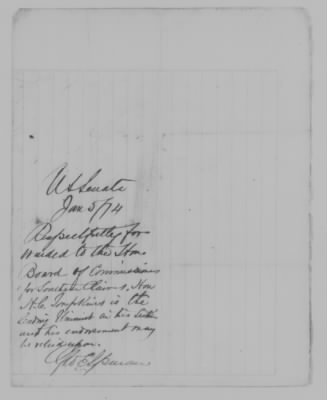 U S Senate
Jan 5/74
Respectfully for
warded to the Hon
Board of Commissioners
for Southern Claims, Hon
Tompkins is the
leading Unionist in his Section
and his endorsement may
be relied upon.
Geo E Spencer